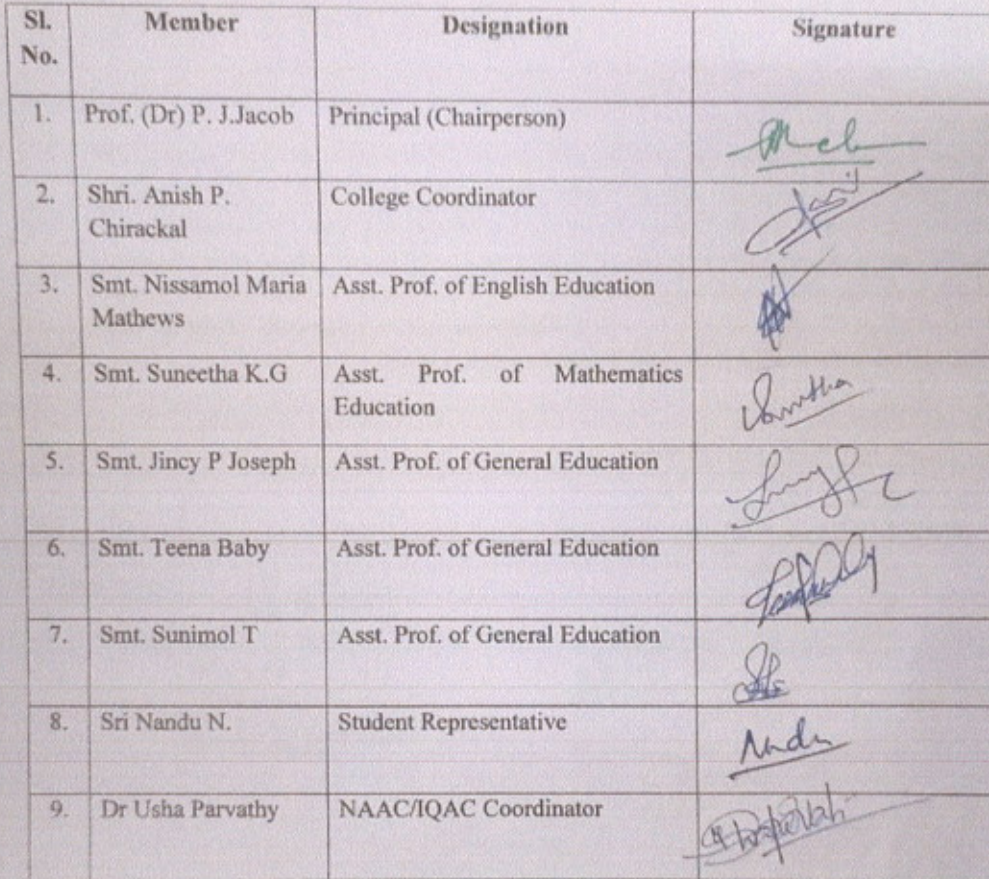 Sl. Member Designation Signature
No.
1. Prof. (Dr) P. J.Jacob Principal (Chairperson)
2. Shri. Anish P. College Coordinator
Chirackal
3. Smt. Nissamol Maria Asst. Prof. of English Education
Mathews
4. Smt. Suneetha K.G Asst. Prof. of Mathematics
Education
5. Smt. Jincy P Joseph Asst. Prof. of General Education
6. Smt. Teena Baby Asst. Prof. of General Education
7. Smt. Sunimol T Asst. Prof. of General Education
8. Sri Nandu N. Student Representative
Nandu
9. Dr Usha Parvathy NAAC/IQAC Coordinator